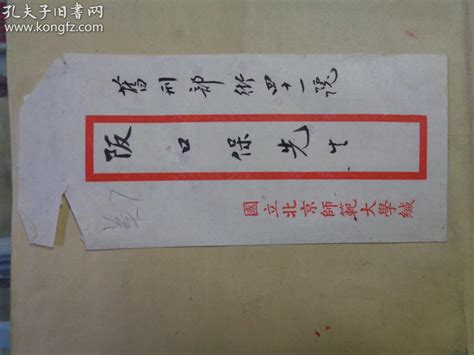 孔夫子旧书网
www.kongfz.com
舊刑部街四十一號
阪口保先生
國立北京師範大學緘